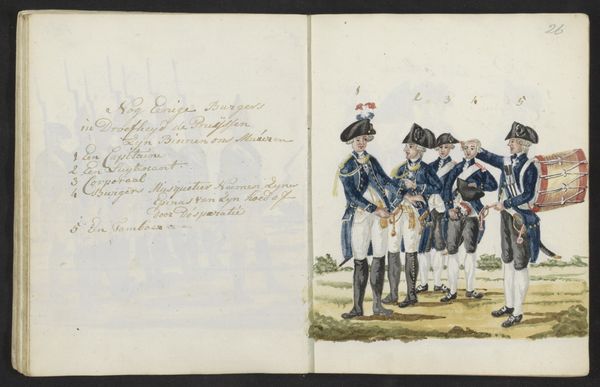 Nog Eenige Burgers
in Droefheyd de Pruijssen
Zyn Binnen ons Mueren
1 Een Capiteine
2 Een Luytenant
3 Corporaal
4 Burgers Musquetier Neemen Zyne
van Zyn hoed af
Voor Disperatie
5 Een Tamboer
26
1 2 3 4 5